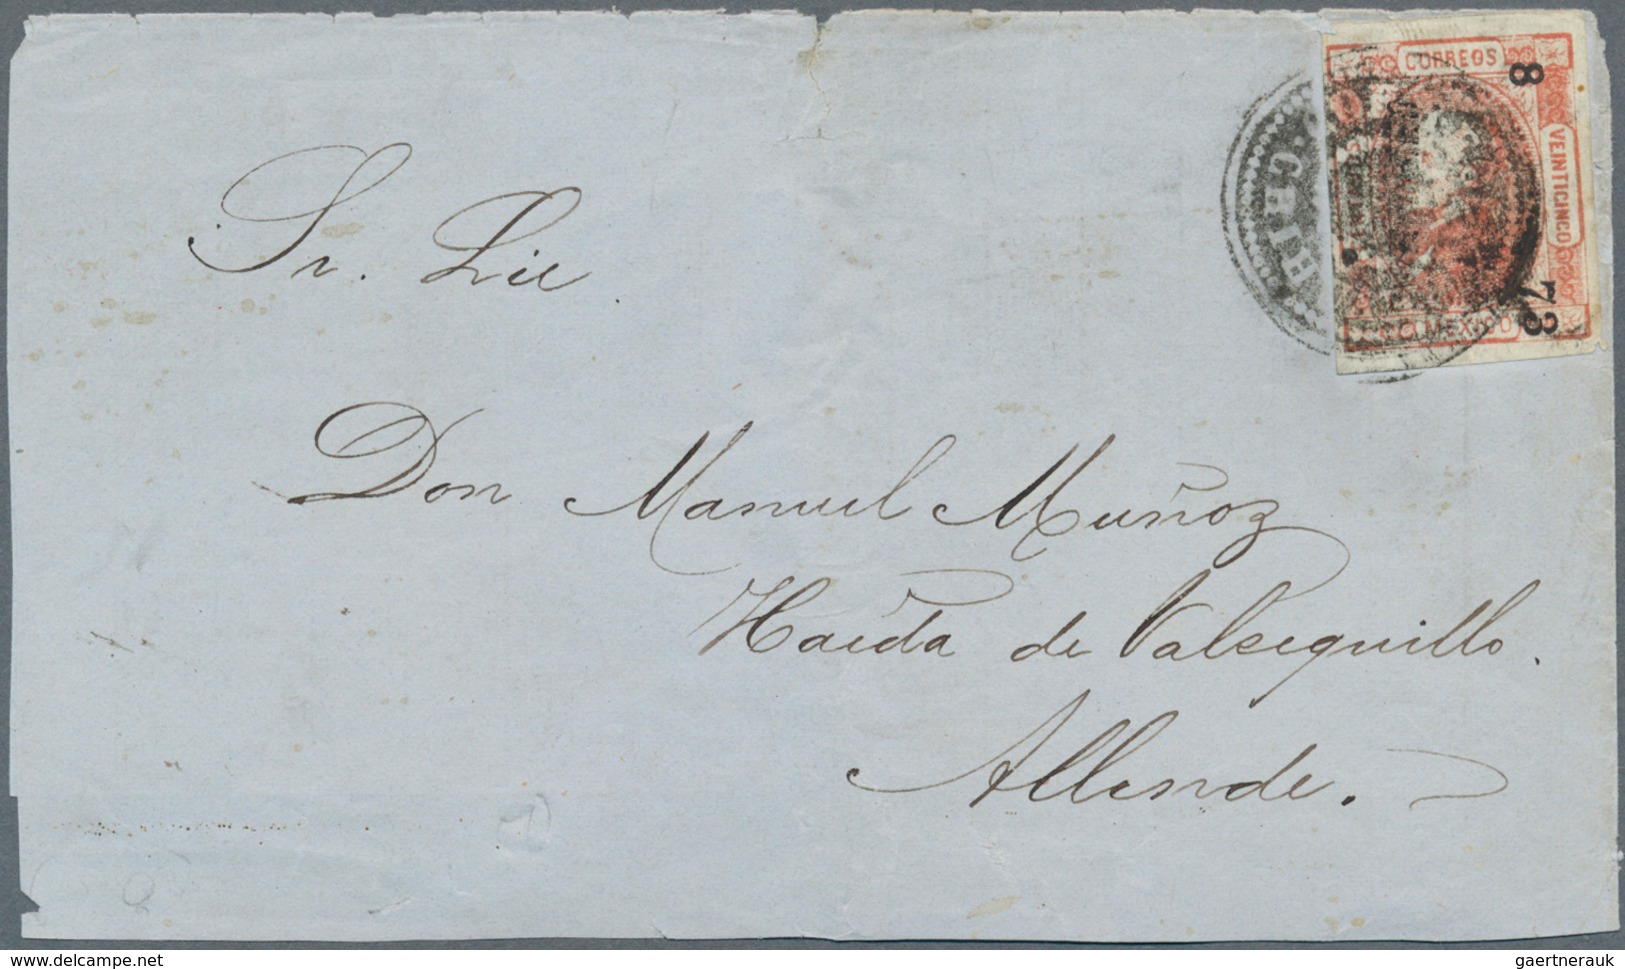 CORREOS
8
VEINTICINCO
73
MEXICO
Sr. Lic
Don Manuel Muñoz
Haćda de Valsequillo.
Allende.
www.delcampe.net
gaertnerauk